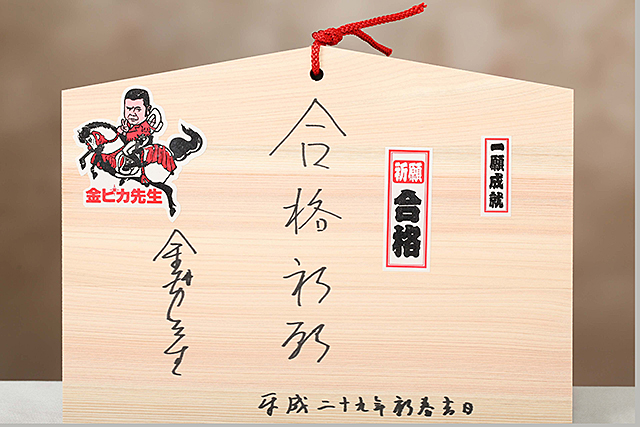 一願成就
祈願
合格
合格祈願
金ピカ先生
金ピカ先生
平成二十九年新春吉日